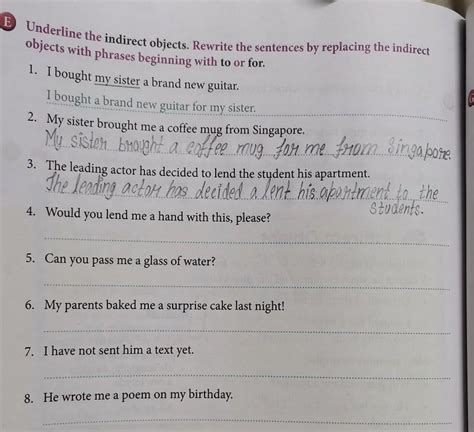 E Underline the indirect objects. Rewrite the sentences by replacing the indirect
objects with phrases beginning with to or for.
1. I bought my sister a brand new guitar.
I bought a brand new guitar for my sister.
2. My sister brought me a coffee mug from Singapore.
My sister brought a coffee mug for me from Singapore.
3. The leading actor has decided to lend the student his apartment.
The leading actor has decided a lent his apartment to the
Students.
4. Would you lend me a hand with this, please?
5. Can you pass me a glass of water?
6. My parents baked me a surprise cake last night!
7. I have not sent him a text yet.
8. He wrote me a poem on my birthday.